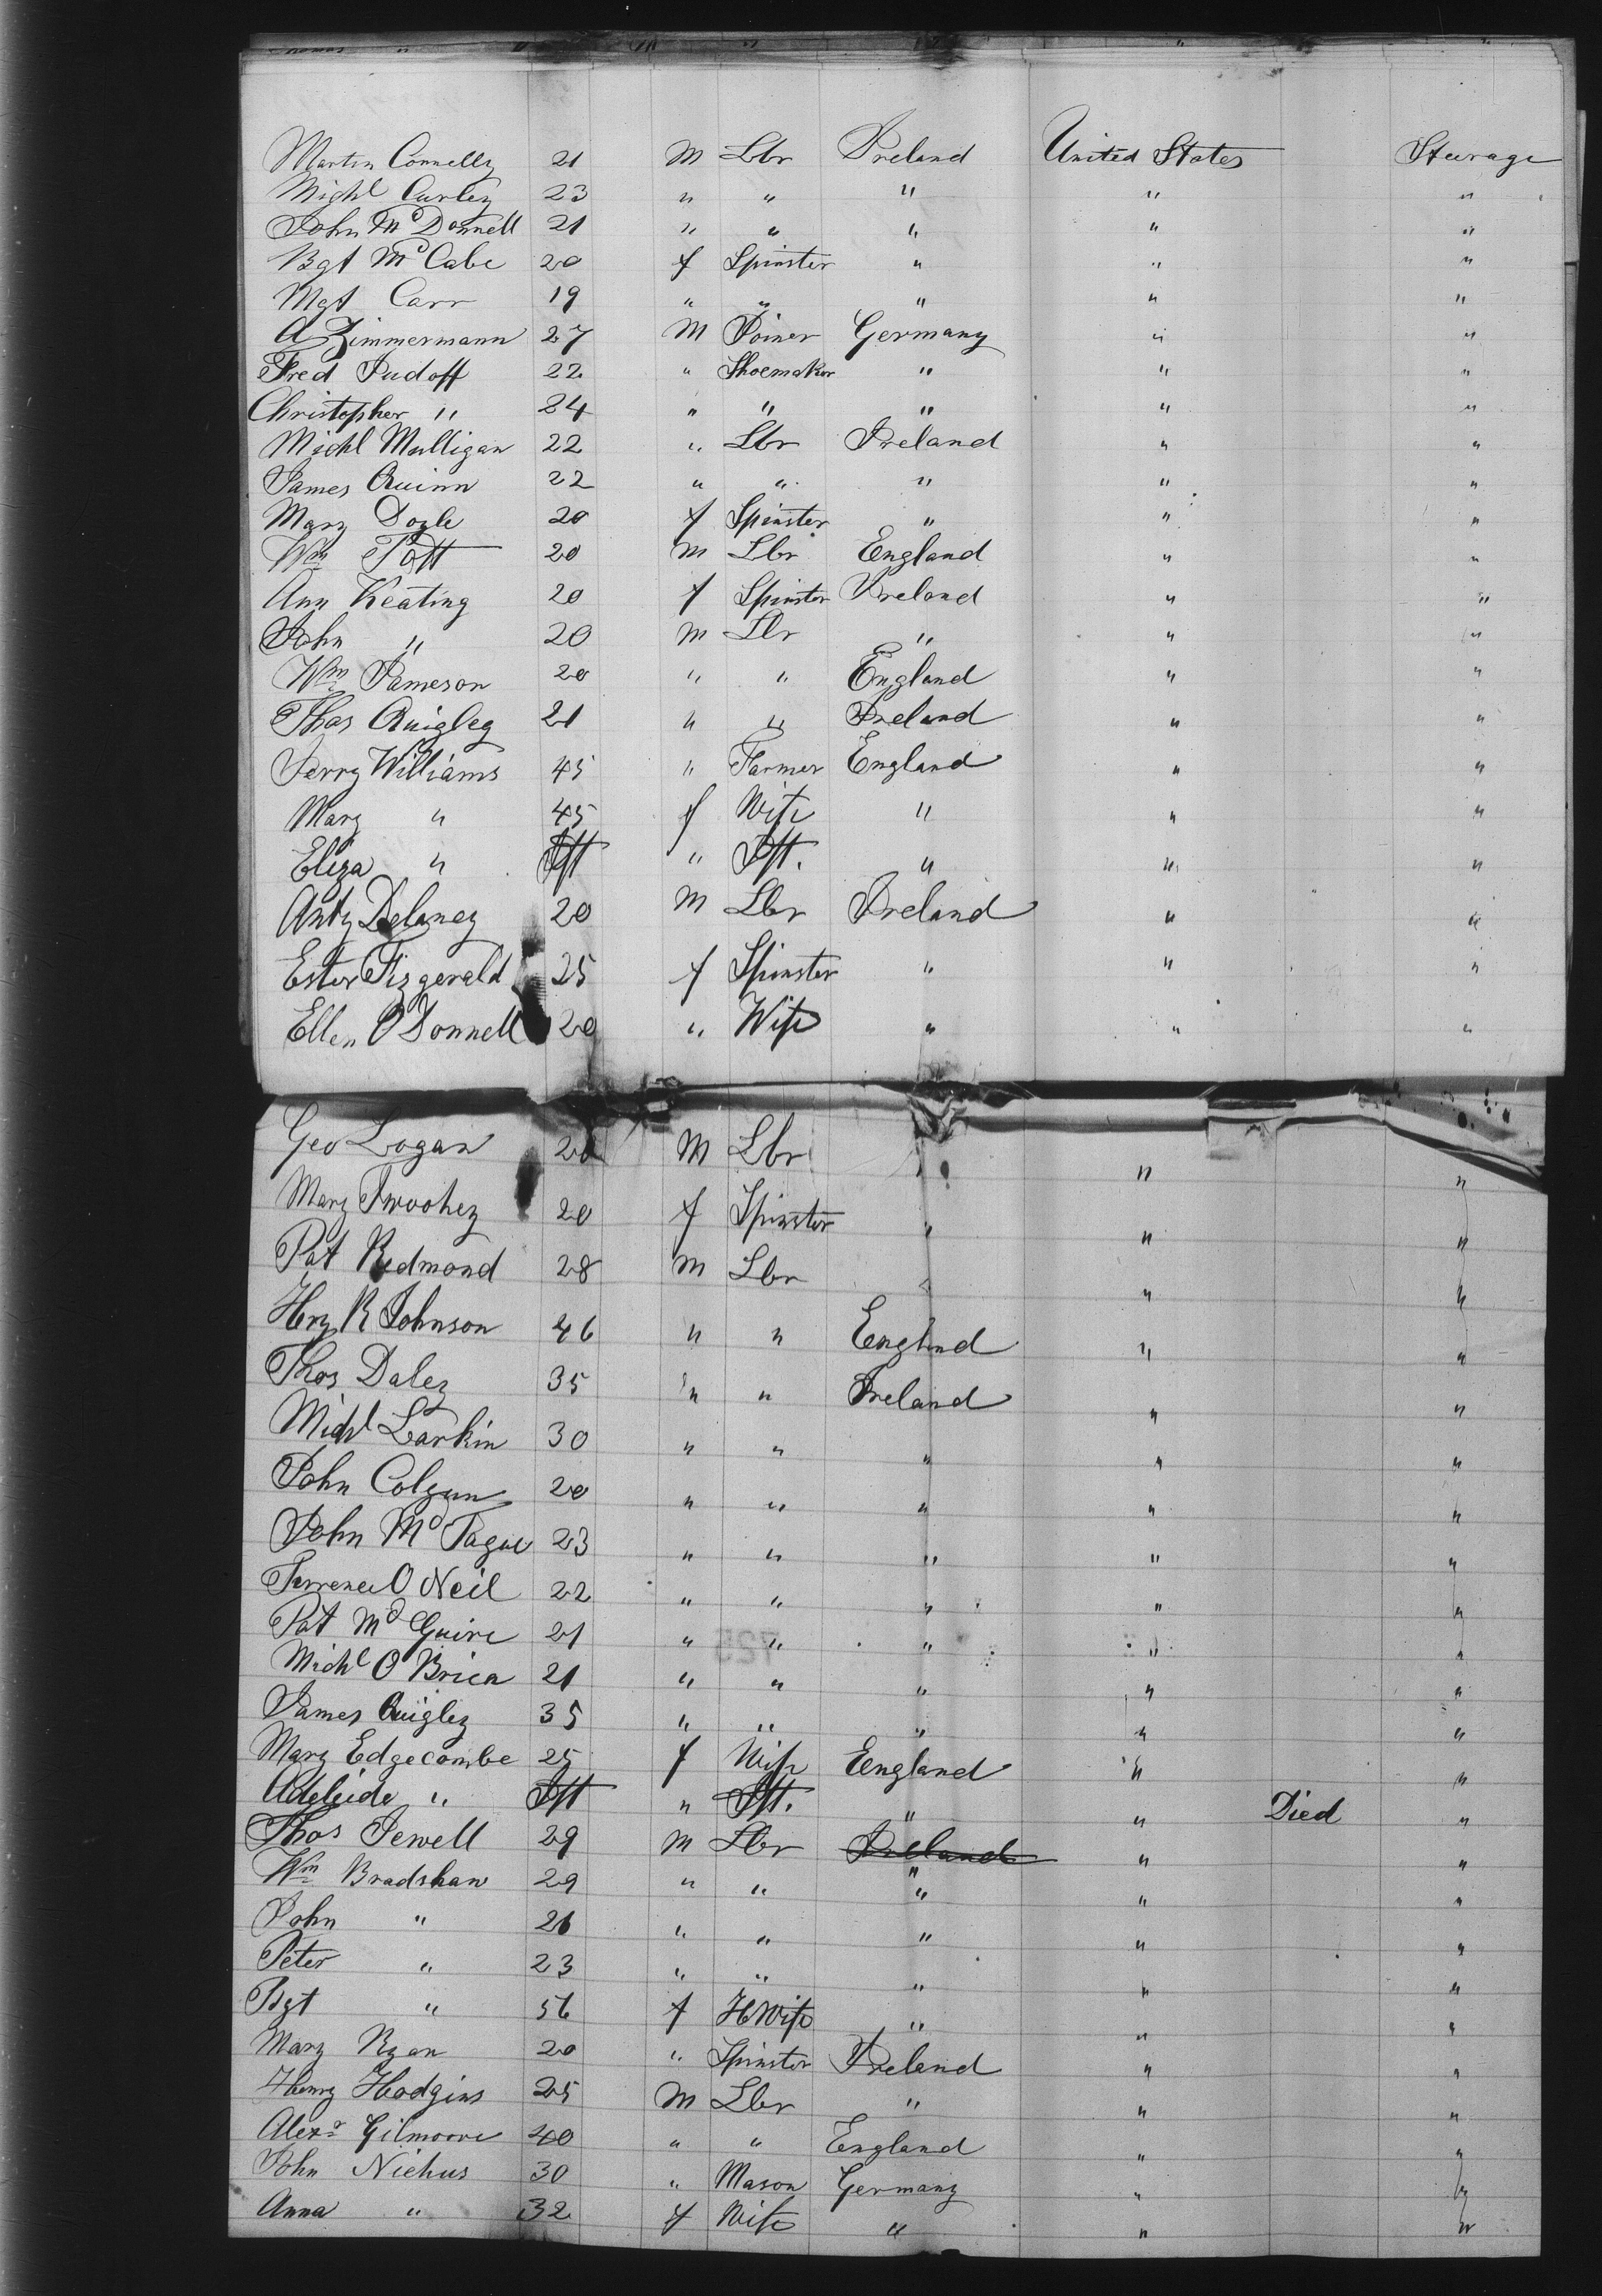 Martin Connelly 21 M Lbr Ireland United States Steerage
Michl Curley 23 " " " " "
John McDonnell 21 " " " " "
Bgt McCabe 20 f Spinster " " "
Mgt Carr 19 " " " " "
A Zimmermann 27 M Joiner Germany " "
Fred Iudoff 22 " Shoemaker " " "
Christopher " 24 " " " " "
Michl Mulligan 22 " Lbr Ireland " "
James Quinn 22 " " " " "
Mary Doyle 20 f Spinster " " "
Wm Pott 20 M Lbr England " "
Ann Keating 20 f Spinster Ireland " "
John " 20 M Lbr " " "
Wm Jameson 20 " " England " "
Thos Quigley 21 " " Ireland " "
Jerry Williams 45 " Farmer England " "
Mary " 45 f Wife " " "
Eliza " Ift " Ift. " " "
Anty Delaney 20 M Lbr Ireland " "
Ester Fizgerald 25 f Spinster " " "
Ellen O Donnell 20 " Wife " " "
Geo Logan 20 M Lbr " "
Mary Twoohey 20 f Spinster " " "
Pat Redmond 28 M Lbr " " "
Hry R Johnson 46 " " England " "
Thos Daley 35 " " Ireland " "
Michl Larkin 30 " " " " "
John Colgan 20 " " " " "
John McTague 23 " " " " "
Terrence O Neil 22 " " " " "
Pat McGuire 21 " " " " "
Michl O Brien 21 " " " " "
James Quigley 35 " " " " "
Mary Edgecombe 25 f Wife England " "
Adeleide " Ift " Ift. " " Died "
Thos Jewell 29 M Lbr Ireland " " "
Wm Bradshaw 29 " " " " "
John " 26 " " " " "
Peter " 23 " " " " "
Bgt " 56 f HWife " " "
Mary Ryan 20 " Spinster Ireland " "
Henry Hodgins 25 M Lbr " " "
Alexr Gilmoore 40 " " England " "
John Niehus 30 " Mason Germany " "
Anna " 32 f Wife " " "